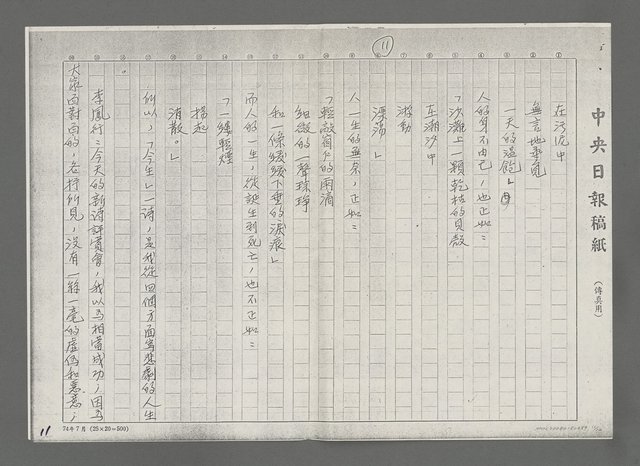 中央日報稿紙
(傳真用)
11
在污泥中
無言地尋覓
一天的溫飽」
人的身不由己,也正如:
「沙灘上一顆乾枯的貝殼
在潮汐中
游動
漂蕩」
人一生的無奈,正如:
「輕敲窗外的雨滴
細微的一聲琤琤
和一條緩緩下垂的淚痕」
而人的一生,從誕生到死亡,也不正如:
「一縷輕煙
揚起
消散。」
所以,「今生」一詩,是我從四個方面寫悲劇的人生
。
李鳳行:今天的新詩評賞會,我以為相當成功,因為
大家面對面的,各抒所見,沒有一絲一毫的虛偽和惡意,
74年7月 (25×20=500)
11